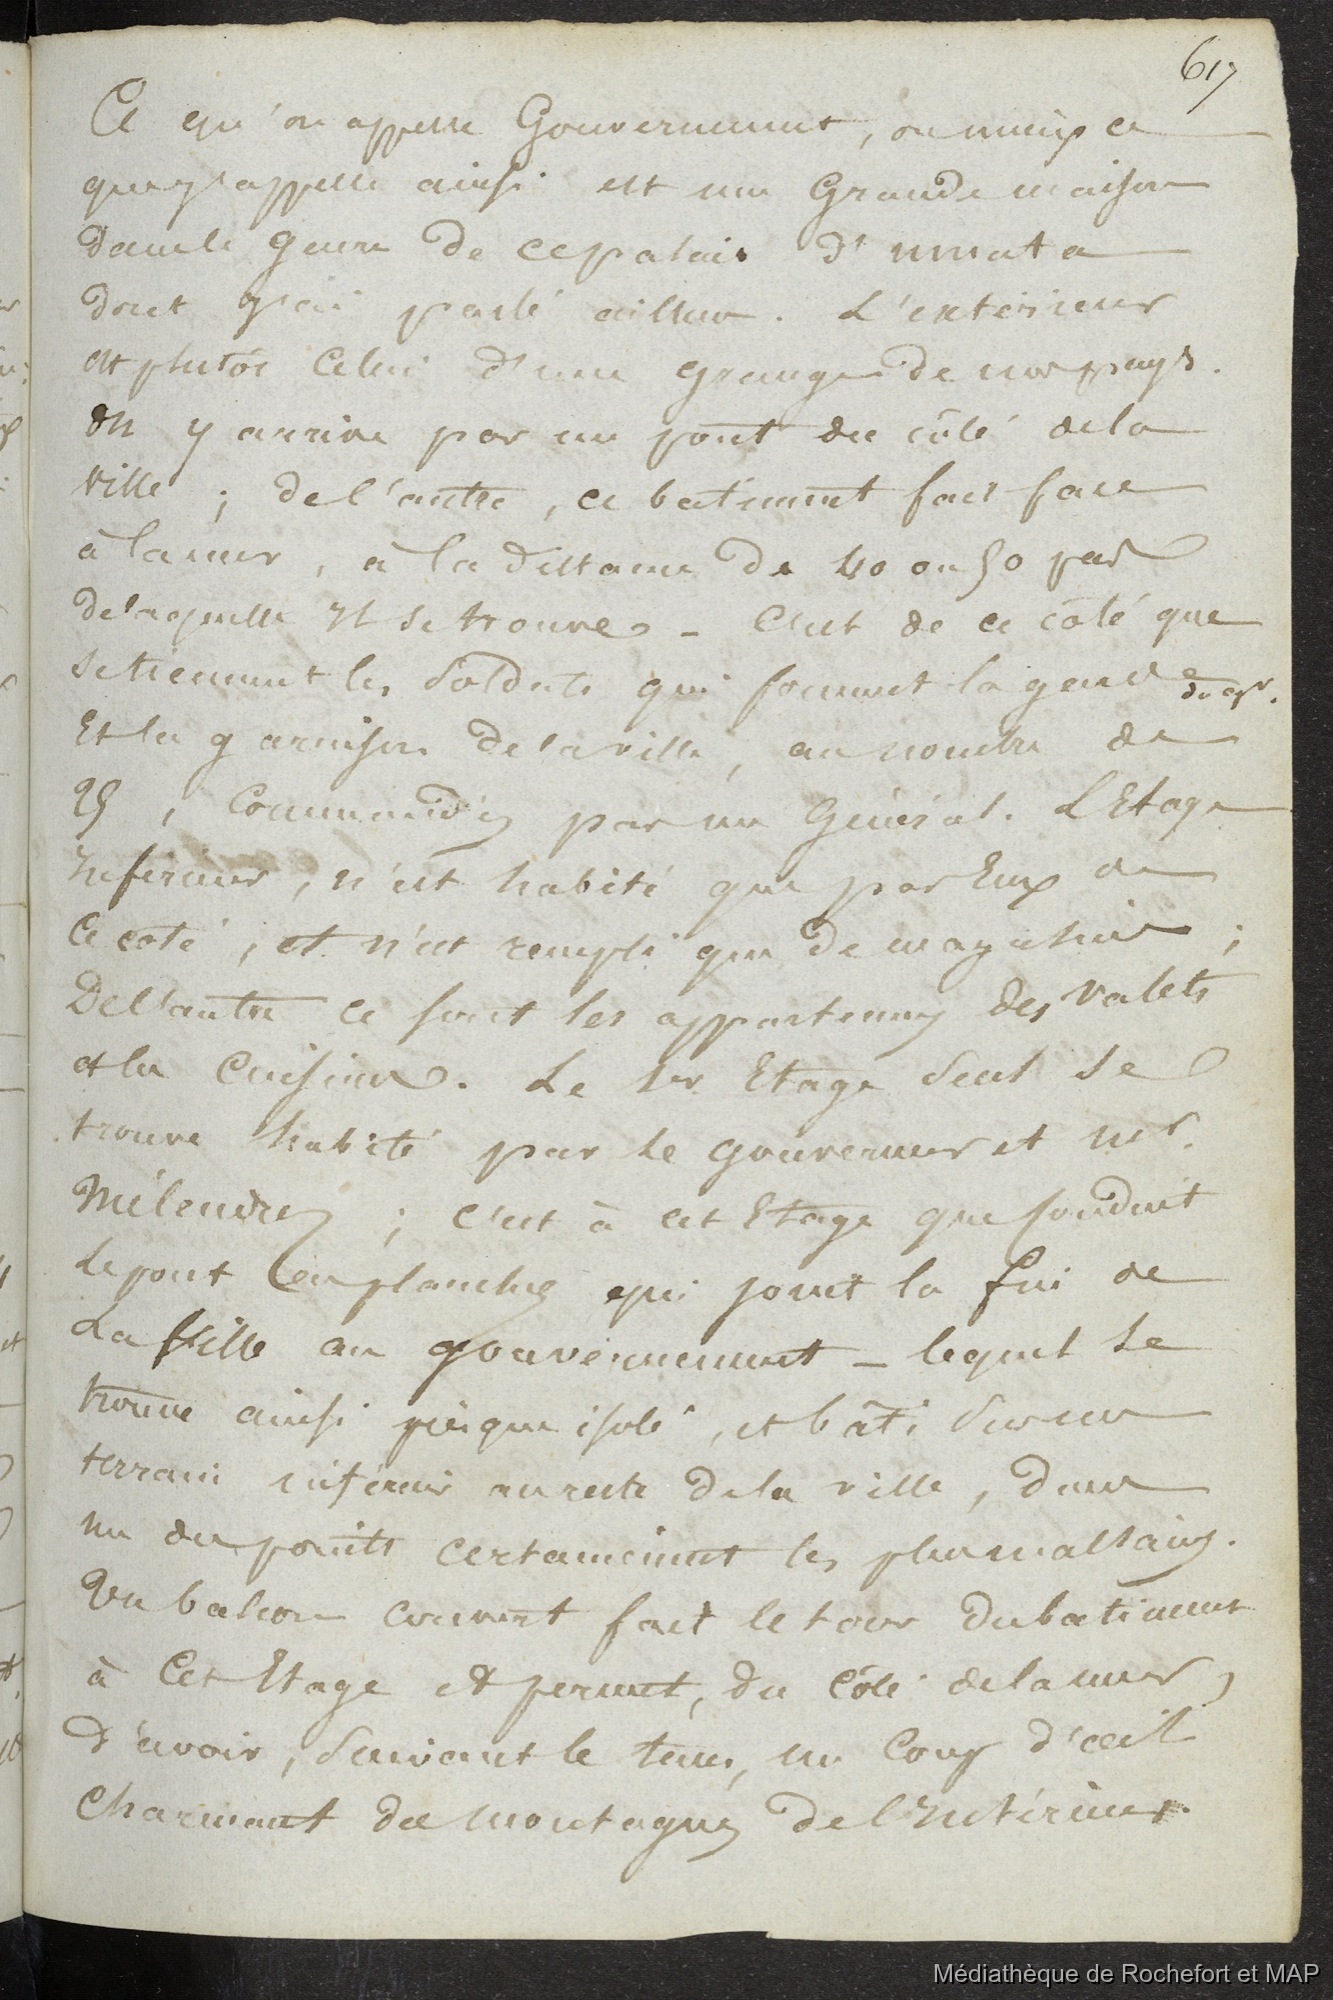 617
Ce qu'on appelle Gouvernement, ou mieux ce
que j'appelle ainsi est une Grande maison
dans le genre de ce palais d'Umata
dont j'ai parlé ailleurs. L'extérieur
est plutôt celui d'une grange de nos pays.
On y arrive par un pont du côté de la
ville ; de l'autre, ce batiment fait face
à la mer, à la distance de 40 ou 50 pas
de laquelle Il se trouve - C'est de ce côté que
se tiennent les Soldats qui forment la garde du gr.
Et la garnison de la ville, au nombre de
25, Commandés par un Général. L'Etage
Inférieur, n'est habité que par Eux de
Ce coté, et n'est rempli que de magasins ;
De l'autre ce sont les appartemens des valets
et la Cuisine. Le 1er Etage seul se
trouve habité par le gouverneur et mr.
Mélendrez ; c'est à cet Etage que conduit
le pont en planches qui joint la fin de
La Ville au gouvernement - lequel se
trouve ainsi presque isolé, et bâti sur un
terrain inférieur au reste de la ville, dans
un des points certainement les plus malsains.
Un balcon couvert fait le tour du batiment
à Cet Etage et permet, du côté de la mer,
d'avoir, suivant le tems, un Coup d'œil
Charmant des montagnes de l'Intérieur.
Médiathèque de Rochefort et MAP